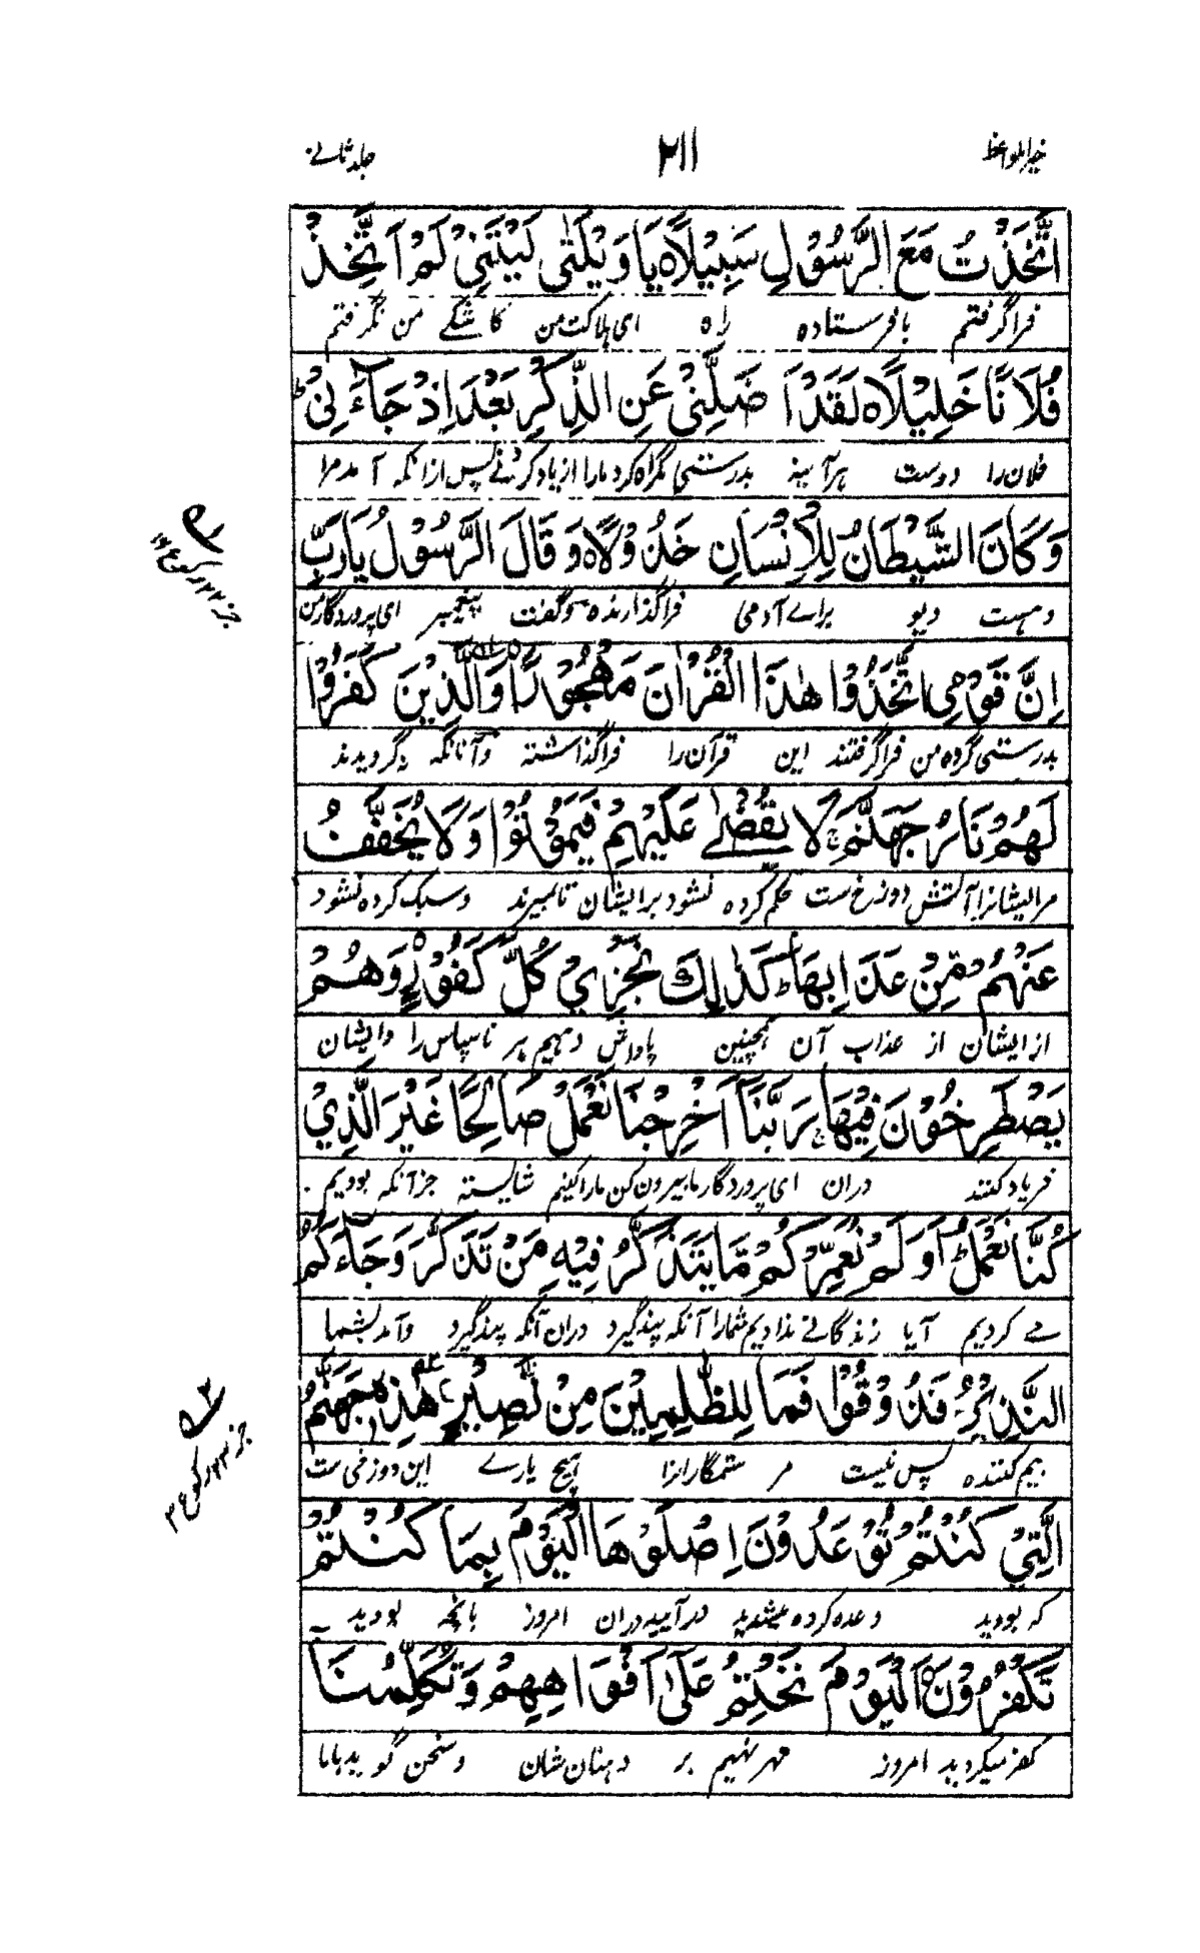 خیر المواعظ ۲۱۱ جلد ثانے
اتَّخَذْتُ مَعَ الرَّسُوْلِ سَبِیْلًا ہ یَا وَیْلَتٰی لَیْتَنِیْ لَمْ اَتَّخِذْ
فراگرفتم با فرستاده راه ای هلاکت من کاشکے من نگرفتم
فُلَانًا خَلِیْلًا ہ لَقَدْ اَضَلَّنِیْ عَنِ الذِّکْرِ بَعْدَ اِذْ جَآءَنِیْ ط
فلان را دوست هرآینه بدرستی گمراه کرد مارا از یاد کردنے پس ازانکه آمد مرا
وَکَانَ الشَّیْطَانُ لِلْاِنْسَانِ خَذُوْلًا ہ وَقَالَ الرَّسُوْلُ یَارَبِّ
وهست دیو براے آدمی فراگذارنده وگفت پیغمبر ای پروردگار من
اِنَّ قَوْمِی اتَّخَذُوْا هٰذَا الْقُرْاٰنَ مَهْجُوْرًا وَالَّذِیْنَ کَفَرُوْا
بدرستی گروه من فراگرفتند این قرآن را فراگذاشته وآنانکه نگرویدند
لَهُمْ نَارُ جَهَنَّمَ ج لَا یُقْضٰے عَلَیْهِمْ فَیَمُوْتُوْا وَلَا یُخَفَّفُ
مرایشانرا آتش دوزخ ست حکم کرده نشود برایشان تا بمیرند وسبک کرده نشود
عَنْهُمْ مِّنْ عَذَابِهَا ط کَذٰلِکَ نَجْزِیْ کُلَّ کَفُوْرٍ وَهُمْ
ازایشان از عذاب آن همچنین پاداش دهیم هر ناسپاس را وایشان
یَصْطَرِخُوْنَ فِیْهَا ج رَبَّنَا اَخْرِجْنَا نَعْمَلْ صَالِحًا غَیْرَ الَّذِیْ
فریاد کنند دران ای پروردگار ما بیرون کن مارا کنیم شایسته جز آنکه بودیم
کُنَّا نَعْمَلُ ط اَوَلَمْ نُعَمِّرْکُمْ مَّا یَتَذَکَّرُ فِیْهِ مَنْ تَذَکَّرَ وَجَآءَکُمُ
مے کردیم آیا زندگانے ندادیم شمارا آنکه پندگیرد دران آنکه پندگیرد وآمد بشما
النَّذِیْرُ فَذُوْقُوْا فَمَا لِلظّٰلِمِیْنَ مِنْ نَّصِیْرٍ هٰذِہٖ جَهَنَّمُ
بیم کننده پس نیست مر ستمگارانرا هیچ یارے این دوزخی ست
الَّتِیْ کُنْتُمْ تُوْعَدُوْنَ اِصْلَوْهَا الْیَوْمَ بِمَا کُنْتُمْ
که بودید وعده کرده میشدید درآیید دران امروز بانچه بودید
تَکْفُرُوْنَ اَلْیَوْمَ نَخْتِمُ عَلٰٓی اَفْوَاهِهِمْ وَتُکَلِّمُنَا
کفر میکردید امروز مهر نهیم بر دهنان شان وسخن گوید باما